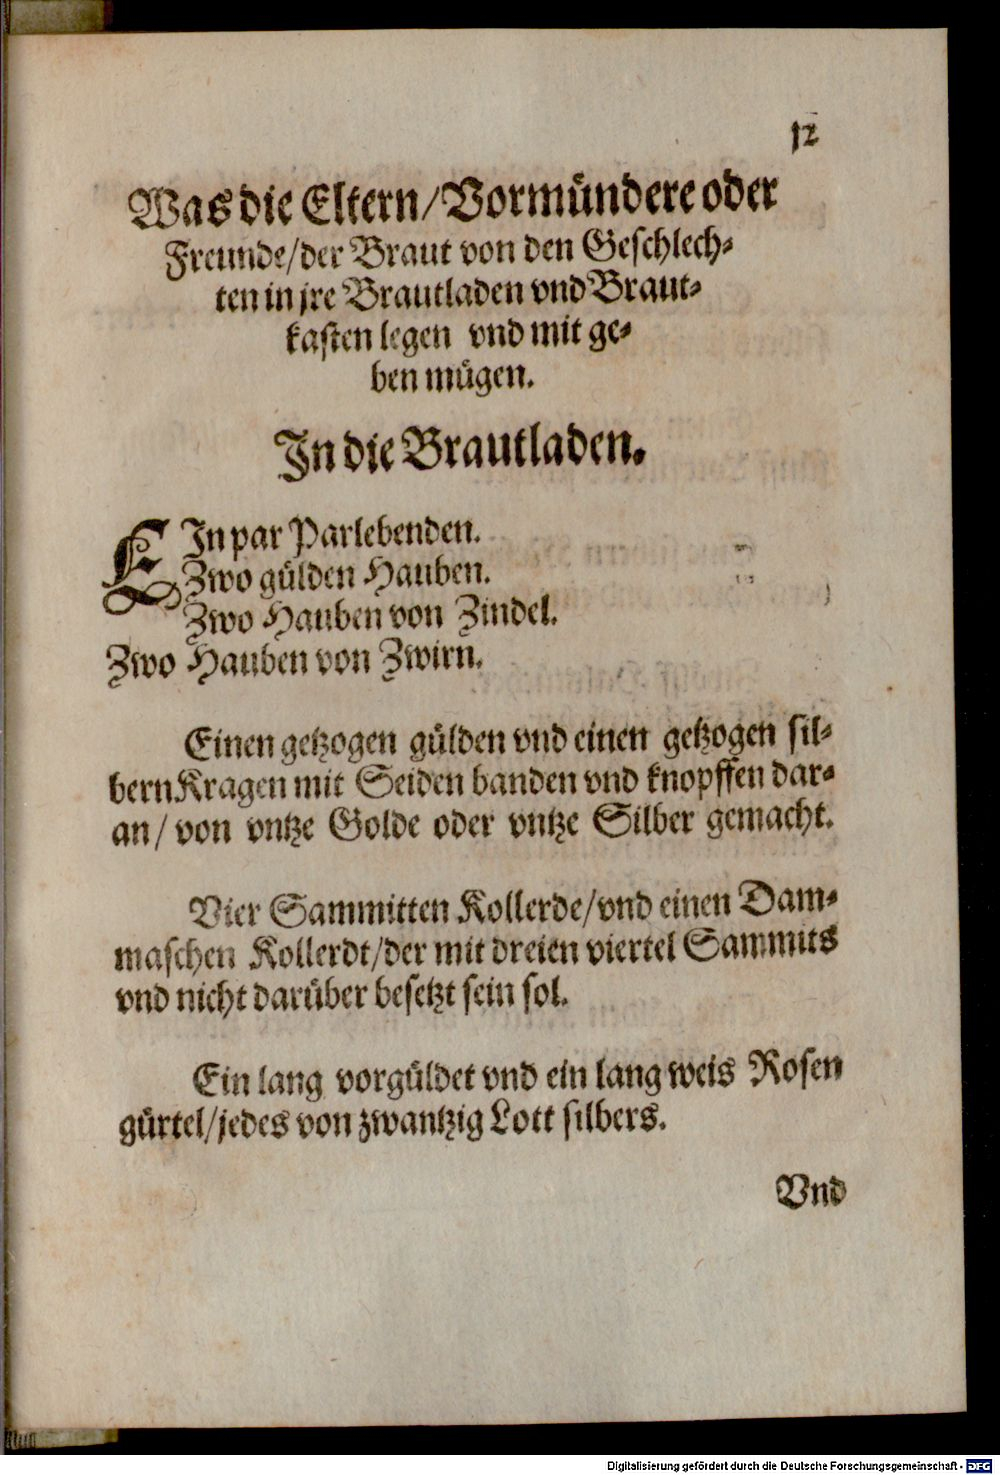 12
Was die Eltern/Vormündere oder
Freunde/der Braut von den Geschlech-
ten in jre Brautladen vnd Braut-
kasten legen vnd mit ge-
ben mügen.
In die Brautladen.
EIn par Parlebenden.
Zwo gülden Hauben.
Zwo Hauben von Zindel.
Zwo Hauben von Zwirn.
Einen getzogen gülden vnd einen getzogen sil-
bern Kragen mit Seiden banden vnd knopffen dar-
an/ von vntze Golde oder vntze Silber gemacht.
Vier Sammitten Kollerde/vnd einen Dam-
maschen Kollerdt/der mit dreien viertel Sammits
vnd nicht darüber besetzt sein sol.
Ein lang vorgüldet vnd ein lang weis Rosen
gürtel/jedes von zwantzig Lott silbers.
Vnd
Digitalisierung gefördert durch die Deutsche Forschungsgemeinschaft - DFG